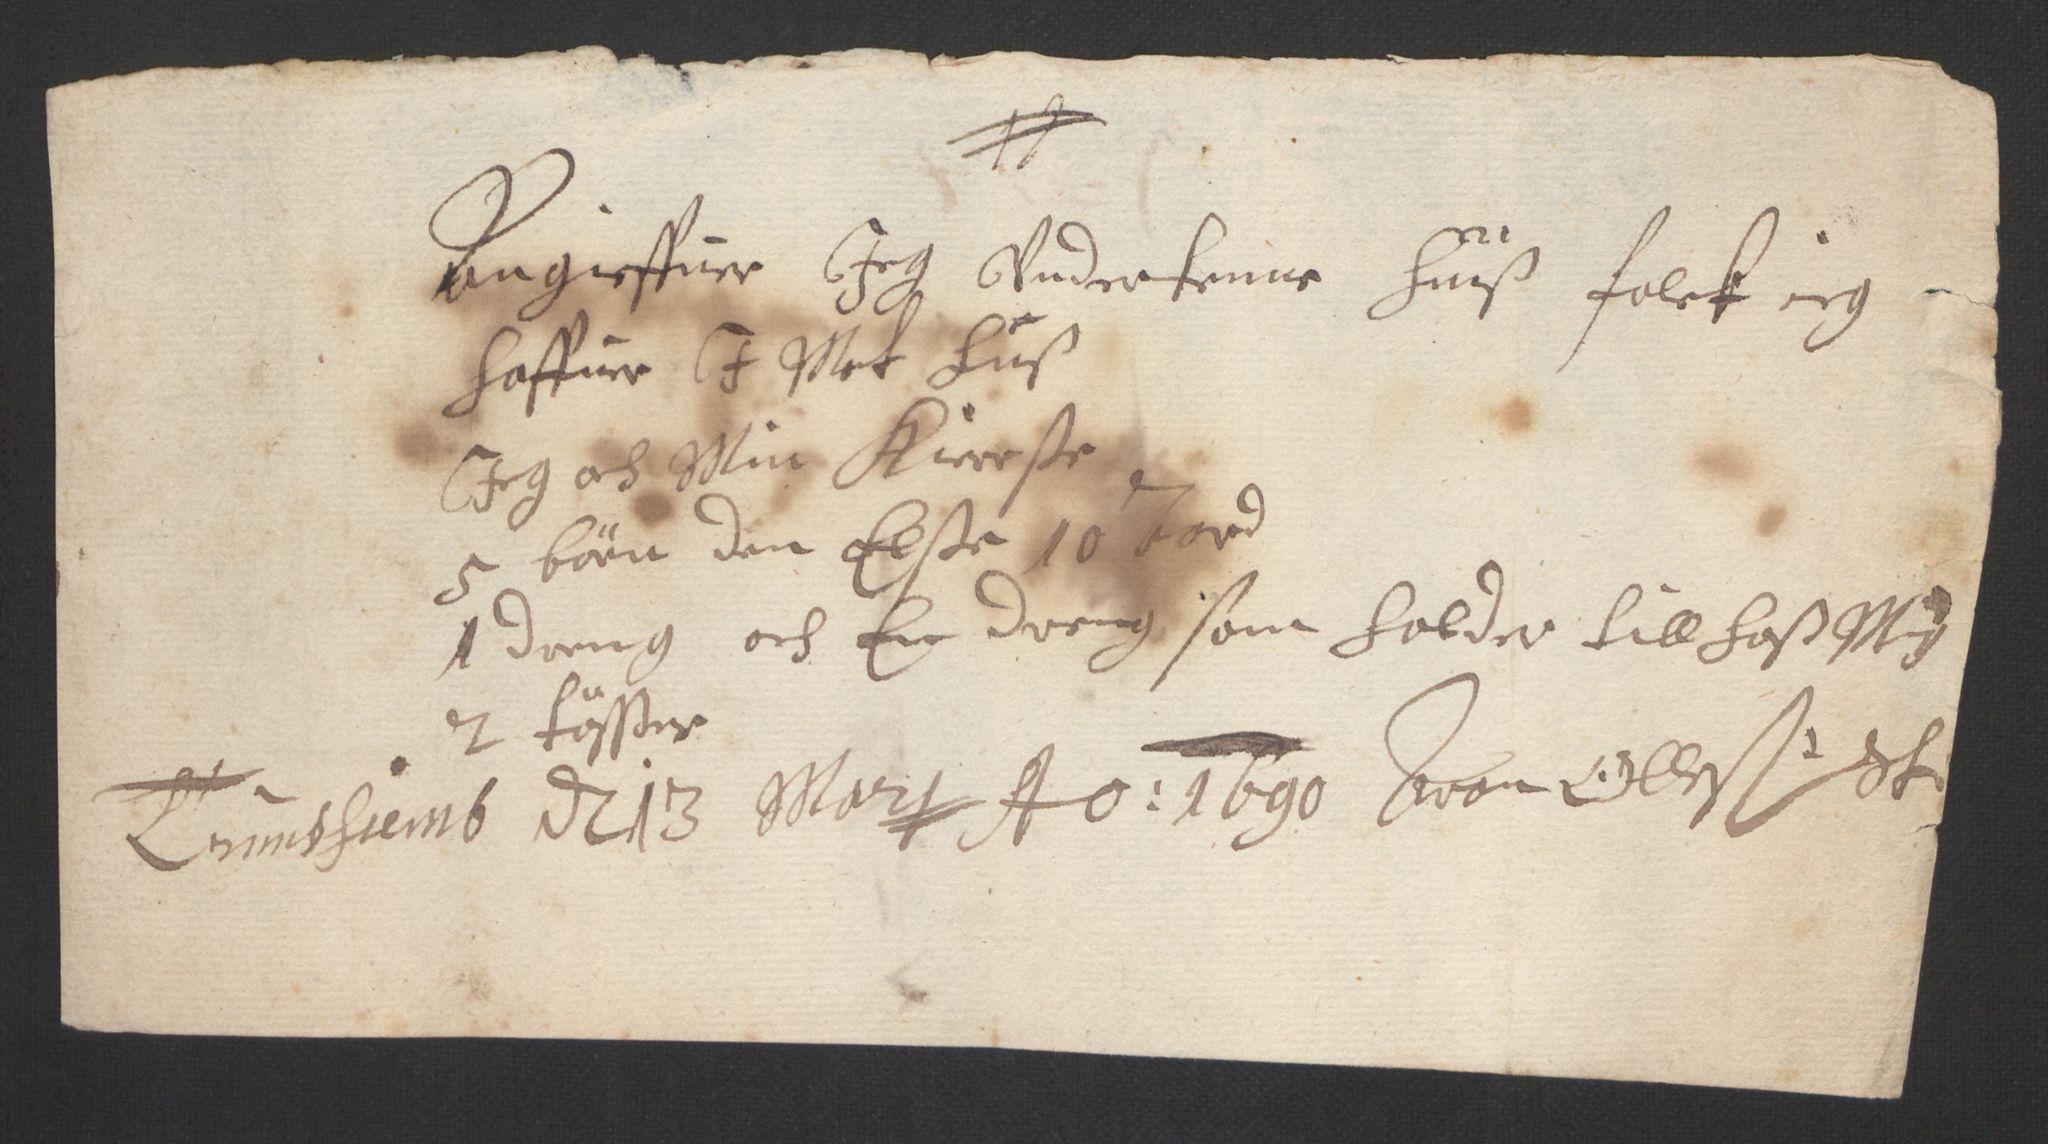 Angieffuer Jeg Vnderkenne huuß folck ieg
haffuer J Mit huß
Jeg och Min Kiereste
5 börn den Elste 10 aar
1 dreng och En dreng som holder till hoß Mig
2 tösser
Trundhiemb d 13 Marty Ao: 1690 Aron Olleß: